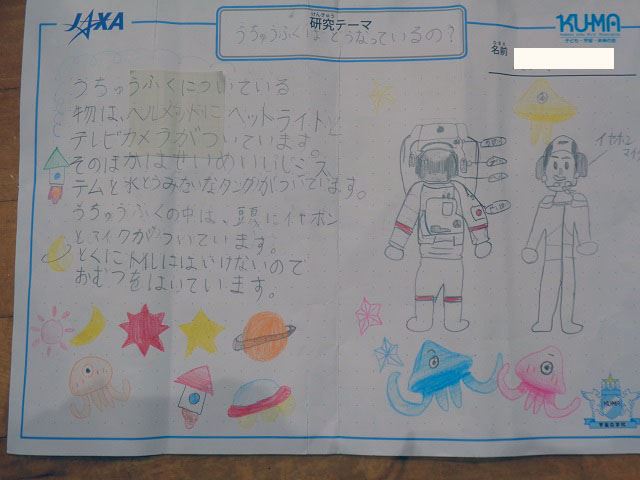 JAXA
けんきゅう
研究テーマ
KUMA
子ども・宇宙・未来の会
うちゅうふくはどうなっているの?
なまえ
名前
うちゅうふくについている
物は、ヘルメットにヘットライトと
テレビカメラがついています。
そのほかはせいめいいじシス
テムと水とうみたいなタンクがついています。
うちゅうふくの中は、頭にイヤホン
とマイクがついています。
とくにトイレにはいけないので
おむつをはいています。
イヤホン
マイク
KUMA
宇宙の学校